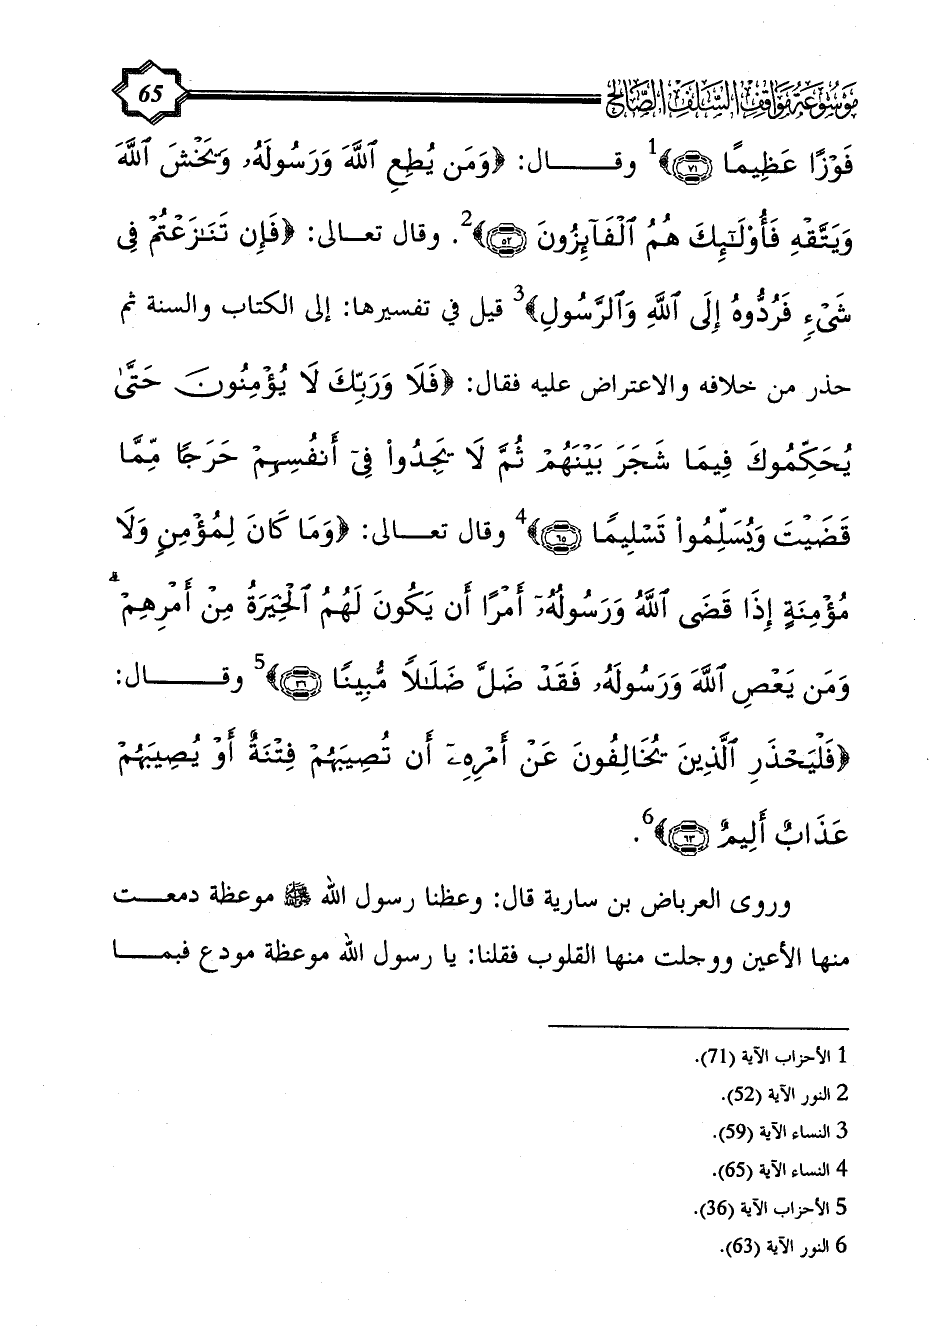 موسوعة مواقف السلف الصالح
65
فَوْزًا عَظِيمًا ﴿٧١﴾﴾1 وقــــال: ﴿وَمَن يُطِعِ ٱللَّهَ وَرَسُولَهُۥ وَيَخْشَ ٱللَّهَ
وَيَتَّقْهِ فَأُوْلَٰٓئِكَ هُمُ ٱلْفَآئِزُونَ ﴿٥٢﴾﴾2. وقال تعــالى: ﴿فَإِن تَنَٰزَعْتُمْ فِى
شَىْءٍ فَرُدُّوهُ إِلَى ٱللَّهِ وَٱلرَّسُولِ﴾3 قيل في تفسيرها: إلى الكتاب والسنة ثم
حذر من خلافه والاعتراض عليه فقال: ﴿فَلَا وَرَبِّكَ لَا يُؤْمِنُونَ حَتَّىٰ
يُحَكِّمُوكَ فِيمَا شَجَرَ بَيْنَهُمْ ثُمَّ لَا يَجِدُوا۟ فِىٓ أَنفُسِهِمْ حَرَجًا مِّمَّا
قَضَيْتَ وَيُسَلِّمُوا۟ تَسْلِيمًا ﴿٦٥﴾﴾4 وقال تعــالى: ﴿وَمَا كَانَ لِمُؤْمِنٍ وَلَا
مُؤْمِنَةٍ إِذَا قَضَى ٱللَّهُ وَرَسُولُهُۥٓ أَمْرًا أَن يَكُونَ لَهُمُ ٱلْخِيَرَةُ مِنْ أَمْرِهِمْ ۗ
وَمَن يَعْصِ ٱللَّهَ وَرَسُولَهُۥ فَقَدْ ضَلَّ ضَلَٰلًا مُّبِينًا ﴿٣٦﴾﴾5 وقــــال:
﴿فَلْيَحْذَرِ ٱلَّذِينَ يُخَالِفُونَ عَنْ أَمْرِهِۦٓ أَن تُصِيبَهُمْ فِتْنَةٌ أَوْ يُصِيبَهُمْ
عَذَابٌ أَلِيمٌ ﴿٦٣﴾﴾6.
وروى العرباض بن سارية قال: وعظنا رسول الله ﷺ موعظة دمعــت
منها الأعين ووجلت منها القلوب فقلنا: يا رسول الله موعظة مودع فبمــا
1 الأحزاب الآية (71).
2 النور الآية (52).
3 النساء الآية (59).
4 النساء الآية (65).
5 الأحزاب الآية (36).
6 النور الآية (63).